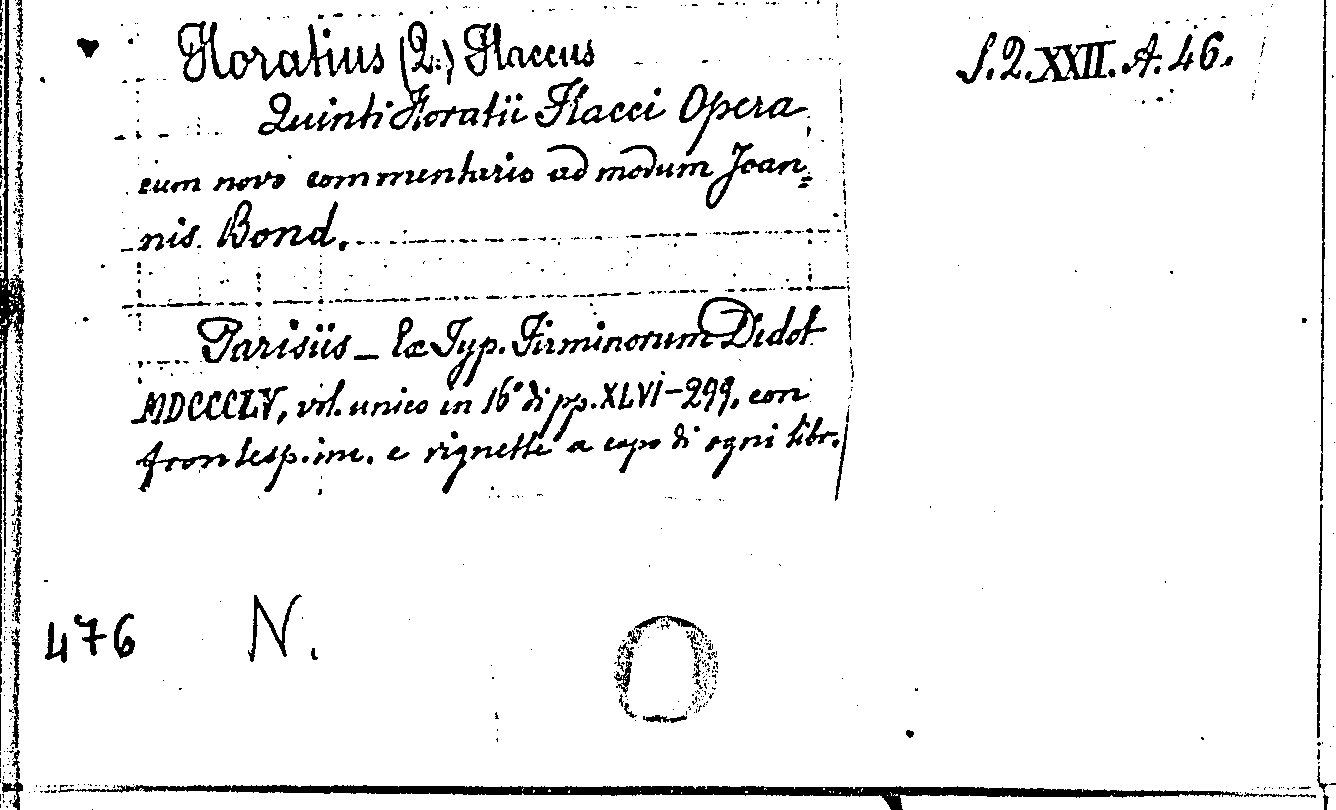 Horatius (Q.) Flaccus
S.Q.XXII.A.46.
Quinti Horatii Flacci Opera
cum novo commentario ad modum Joan=
nis Bond.
Parisiis – Ex Typ. Firminorum Didot
MDCCCLV, vol. unico in 16° di pp. XLVI-299, con
frontesp. inc. e vignette a capo di ogni libr.
476 N.